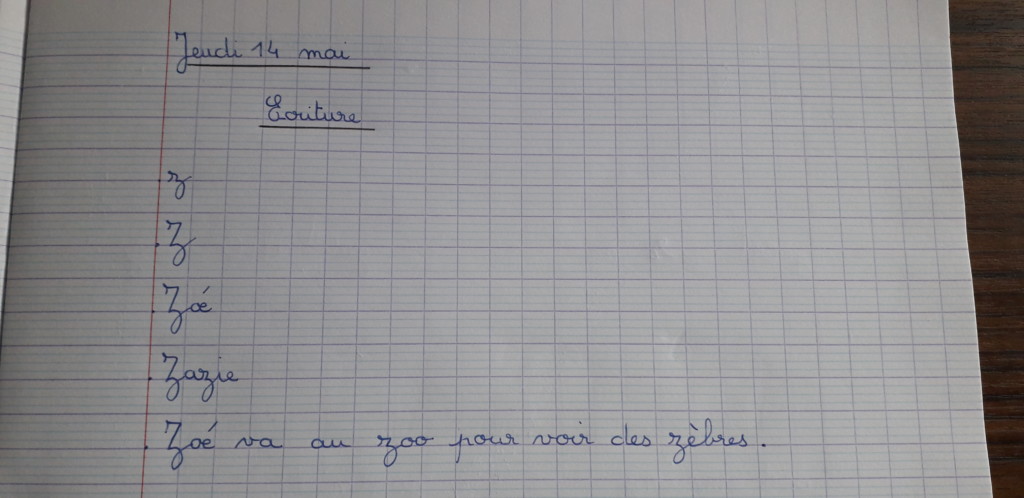 Jeudi 14 mai
Ecriture
z
Z
Zoé
Zazie
Zoé va au zoo pour voir des zèbres.